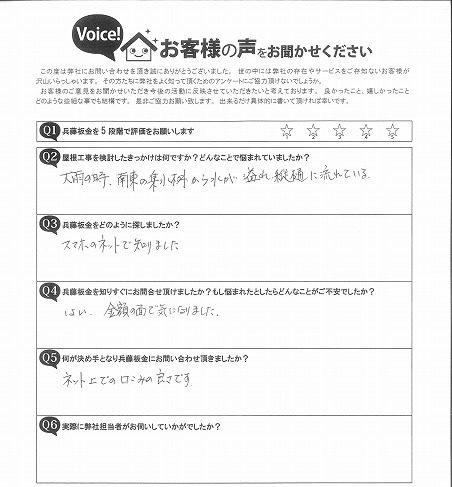 Voice!
お客様の声をお聞かせください
この度は弊社にお問い合わせを頂き誠にありがとうございました。 世の中には弊社の存在やサービスをご存知ないお客様が
沢山いらっしゃいます。 その方たちに弊社をよく知って頂くためのアンケートにご協力頂けないでしょうか。
お客様のご意見をお聞かせいただき今後の活動に反映させていただきたいと考えております。 良かったこと、嬉しかったこと
どのような些細な事でも結構です。 是非ご協力お願い致します。 出来るだけ具体的に書いて頂ければ幸いです。
Q1 兵藤板金を5段階で評価をお願いします
1 2 3 4 5
Q2 屋根工事を検討したきっかけは何ですか？どんなことで悩まれていましたか？
大雨の時、南東の集水枡から水が溢れ縦樋に流れている
Q3 兵藤板金をどのように探しましたか？
スマホのネットで知りました
Q4 兵藤板金を知りすぐにお問合せ頂けましたか？もし悩まれたとしたらどんなことがご不安でしたか？
はい、金額の面で気になりました。
Q5 何が決め手となり兵藤板金にお問い合わせ頂きましたか？
ネット上での口コミの良さです
Q6 実際に弊社担当者がお伺いしていかがでしたか？